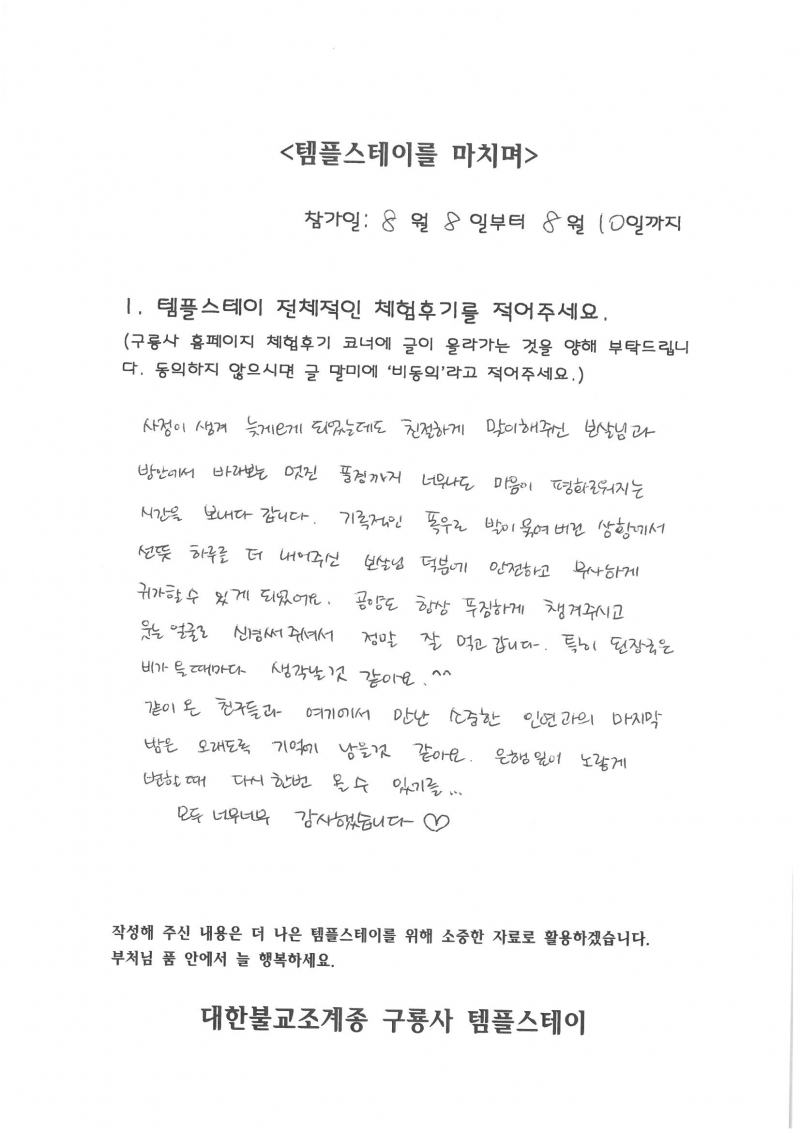 <템플스테이를 마치며>
참가일: 8 월 8 일부터 8월 10일까지
1. 템플스테이 전체적인 체험후기를 적어주세요.
(구룡사 홈페이지 체험후기 코너에 글이 올라가는 것을 양해 부탁드립니
다. 동의하지 않으시면 글 말미에 '비동의'라고 적어주세요.)
사정이 생겨 늦게 되었는데도 친절하게 맞이해주신 보살님과
방안에서 바라보는 멋진 풍경까지 너무나도 마음이 평화로워지는
시간을 보내다 갑니다. 기록적인 폭우로 발이 묶여버린 상황에서
선뜻 하루를 더 내어주신 보살님 덕분에 안전하고 무사하게
귀가할 수 있게 되었어요. 공양도 항상 푸짐하게 챙겨주시고
웃는 얼굴로 신경써 주셔서 정말 잘 먹고 갑니다. 특히 된장국은
비가 올 때마다 생각날 것 같아요.^^
같이 온 친구들과 여기에서 만난 소중한 인연과의 마지막
밤은 오래도록 기억에 남을것 같아요. 은행잎이 노랗게
변할 때 다시 한번 올 수 있기를...
모두 너무너무 감사했습니다 ♡
작성해 주신 내용은 더 나은 템플스테이를 위해 소중한 자료로 활용하겠습니다.
부처님 품 안에서 늘 행복하세요.
대한불교조계종 구룡사 템플스테이